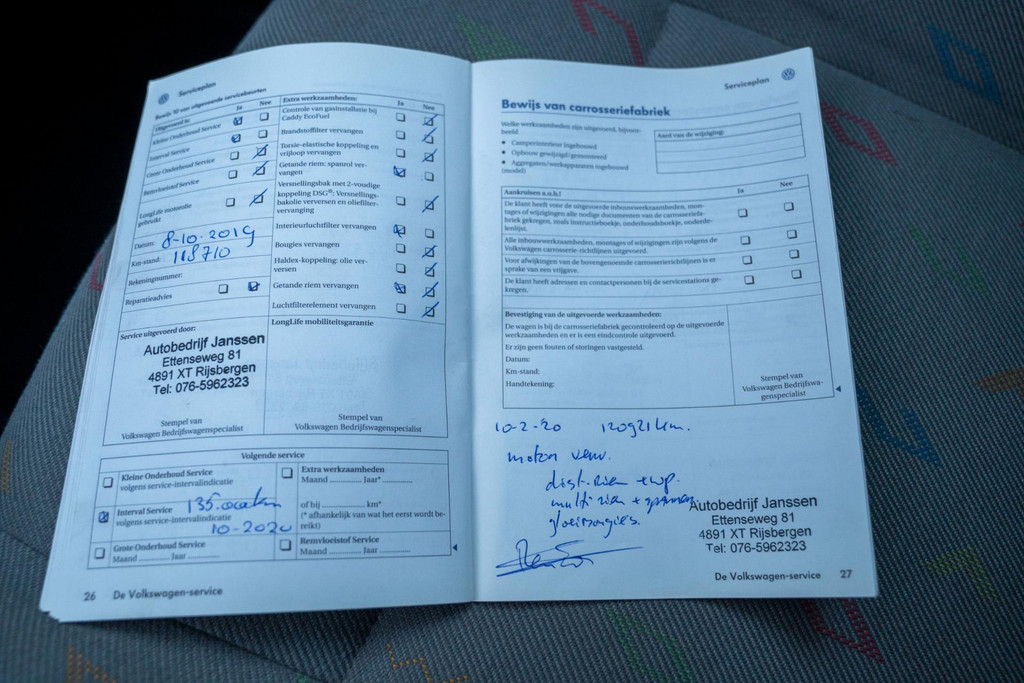 Serviceplan
Bewijs 10 van uitgevoerde servicebeurten
Uitgevoerd is: Ja Nee
Kleine Onderhoud Service
Interval Service
Grote Onderhoud Service
Remvloeistof Service
LongLife motorolie
gebruikt
Datum: 8-10-2019
Km-stand: 118710
Rekeningnummer:
Reparatieadvies
Extra werkzaamheden: Ja Nee
Controle van gasinstallatie bij
Caddy EcoFuel
Brandstoffilter vervangen
Torsie-elastische koppeling en
vrijloop vervangen
Getande riem: spanrol ver-
vangen
Versnellingsbak met 2-voudige
koppeling DSG®: Versnellings-
bakolie verversen en oliefilter-
vervanging
Interieurluchtfilter vervangen
Bougies vervangen
Haldex-koppeling: olie ver-
versen
Getande riem vervangen
Luchtfilterelement vervangen
Service uitgevoerd door:
Autobedrijf Janssen
Ettenseweg 81
4891 XT Rijsbergen
Tel: 076-5962323
Stempel van
Volkswagen Bedrijfswagenspecialist
LongLife mobiliteitsgarantie
Stempel van
Volkswagen Bedrijfswagenspecialist
Volgende service
Kleine Onderhoud Service
volgens service-intervalindicatie
Interval Service 135.000km
volgens service-intervalindicatie
10-2020
Grote Onderhoud Service
Maand Jaar
Extra werkzaamheden
Maand Jaar*
of bij km*
(* afhankelijk van wat het eerst wordt be-
reikt)
Remvloeistof Service
Maand Jaar
26 De Volkswagen-service
Serviceplan
Bewijs van carrosseriefabriek
Welke werkzaamheden zijn uitgevoerd, bijvoor-
beeld
• Camperinterieur ingebouwd
• Opbouw gewijzigd/gemonteerd
• Aggregaten/werkapparaten ingebouwd
(model)
Aard van de wijziging:
Aankruisen a.u.b.! Ja Nee
De klant heeft voor de uitgevoerde inbouwwerkzaamheden, mon-
tages of wijzigingen alle nodige documenten van de carrosseriefa-
briek gekregen, zoals instructieboekje, onderhoudsboekje, onderde-
lenlijst.
Alle inbouwwerkzaamheden, montages of wijzigingen zijn volgens de
Volkswagen carrosserie-richtlijnen uitgevoerd.
Voor afwijkingen van de bovengenoemde carrosserierichtlijnen is er
sprake van een vrijgave.
De klant heeft adressen en contactpersonen bij de servicestations ge-
kregen.
Bevestiging van de uitgevoerde werkzaamheden:
De wagen is bij de carrosseriefabriek gecontroleerd op de uitgevoerde
werkzaamheden en er is een eindcontrole uitgevoerd.
Er zijn geen fouten of storingen vastgesteld.
Datum:
Km-stand:
Handtekening:
Stempel van
Volkswagen Bedrijfswa-
genspecialist
10-2-20 120921km.
motor verv.
dist. riem + wp.
multi riem + spanner
gloeibougies.
Autobedrijf Janssen
Ettenseweg 81
4891 XT Rijsbergen
Tel: 076-5962323
De Volkswagen-service 27